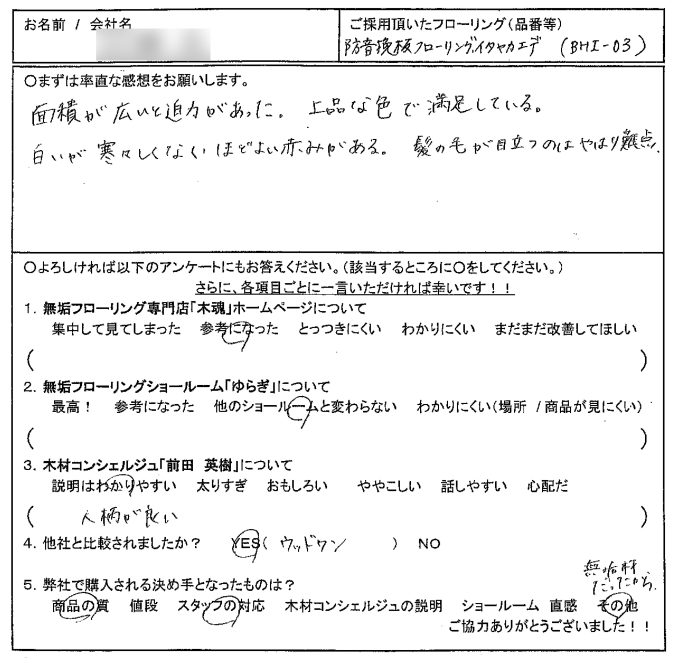 お名前 / 会社名
ご採用頂いたフローリング(品番等)
防音挽板フローリングイタヤカエデ (BHI-03)
〇まずは率直な感想をお願いします。
面積が広いと迫力があった。 上品な色で満足している。
白いが寒々しくなくほどよい赤みがある。 髪の毛が目立つのはやはり難点.
〇よろしければ以下のアンケートにもお答えください。(該当するところに〇をしてください。)
さらに、各項目ごとに一言いただければ幸いです！！
1. 無垢フローリング専門店「木魂」ホームページについて
集中して見てしまった 参考になった とっつきにくい わかりにくい まだまだ改善してほしい
( )
2. 無垢フローリングショールーム「ゆらぎ」について
最高！ 参考になった 他のショールームと変わらない わかりにくい(場所 / 商品が見にくい)
( )
3. 木材コンシェルジュ「前田 英樹」について
説明はわかりやすい 太りすぎ おもしろい ややこしい 話しやすい 心配だ
( 人柄が良い )
4. 他社と比較されましたか？ YES( ウッドワン ) NO
5. 弊社で購入される決め手となったものは？
無垢材
だったから.
商品の質 値段 スタッフの対応 木材コンシェルジュの説明 ショールーム 直感 その他
ご協力ありがとうございました！！